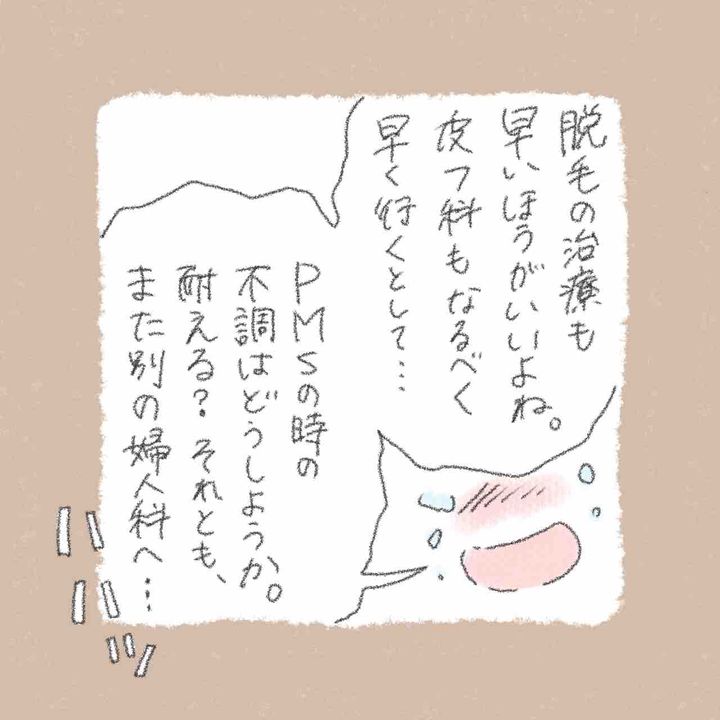 脱毛の治療も
早いほうがいいよね。
皮フ科もなるべく
早く行くとして…
PMSの時の
不調はどうしようか。
耐える？それとも、
また別の婦人科へ…
ハハッ